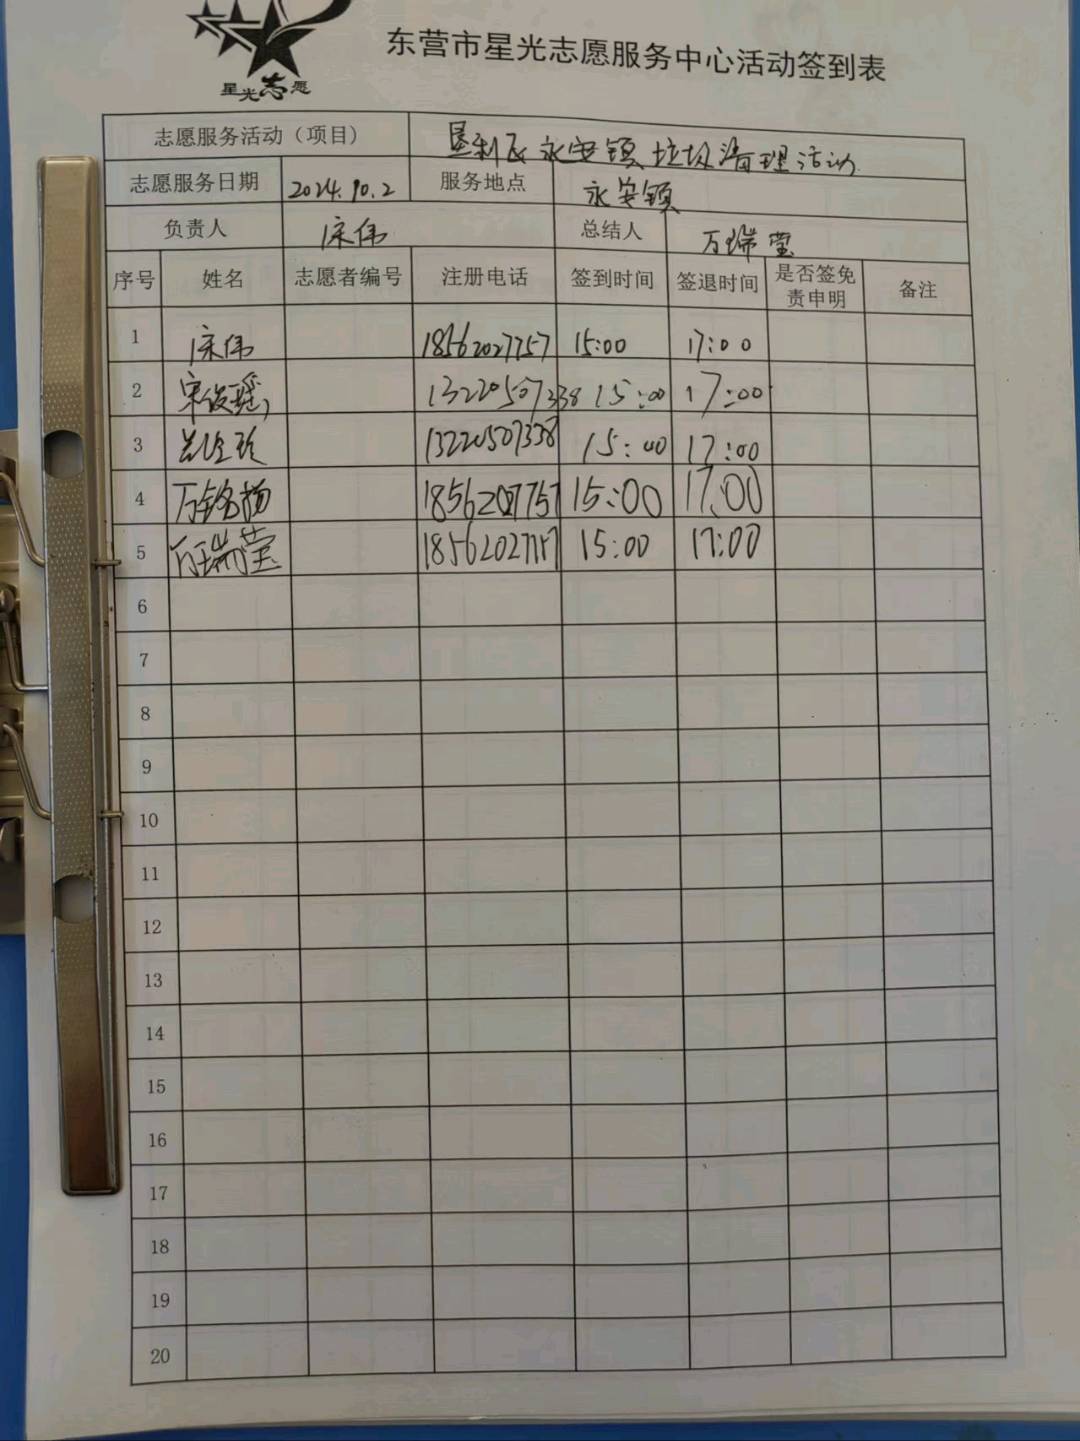 星光志愿
东营市星光志愿服务中心活动签到表
志愿服务活动（项目） 垦利区永安镇垃圾清理活动
志愿服务日期 2024.10.2 服务地点 永安镇
负责人 宋伟 总结人 万瑞莹
序号 姓名 志愿者编号 注册电话 签到时间 签退时间 是否签免责申明 备注
1 宋伟 18562027757 15:00 17:00
2 13220507338 15:00 17:00
3 13220507338 15:00 17:00
4 万铭扬 15:00 17:00
5 万瑞莹 15:00 17:00
6
7
8
9
10
11
12
13
14
15
16
17
18
19
20